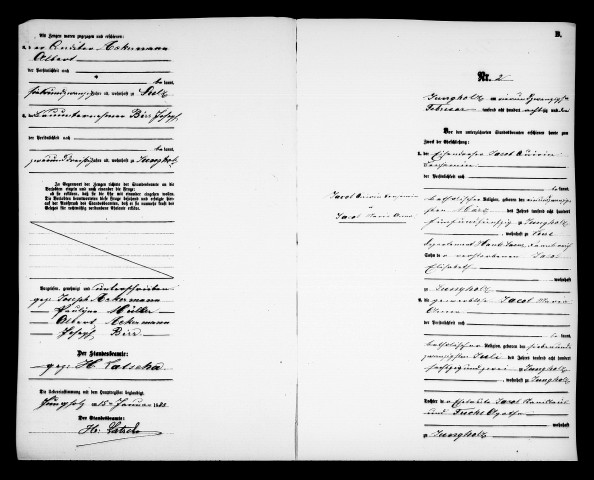 Als Zeugen waren zugezogen und erschienen:
1. der Ackermann
Albert
der Persönlichkeit nach
be kannt,
Jahre alt, wohnhaft in Sulz
2. der Bauunternehmer Birr Joseph
der Persönlichkeit nach
be kannt,
Jahre alt, wohnhaft in Jungholz
In Gegenwart der Zeugen richtete der Standesbeamte an die
Verlobten einzeln und nach einander die Frage:
ob sie erklären, daß sie die Ehe mit einander eingehen wollen.
Die Verlobten beantworteten diese Frage bejahend und erfolgte hier-
auf der Ausspruch des Standesbeamten, daß er sie nunmehr kraft des
Gesetzes für rechtmäßig verbundene Eheleute erkläre.
Vorgelesen, genehmigt und unterschrieben
gez: Joseph Ackermann
Pauline Müller
Albert Ackermann
Joseph Birr
Der Standesbeamte:
gez: H. Latscha
Die Uebereinstimmung mit dem Hauptregister beglaubigt.
Jungholz am Januar 188
Der Standesbeamte:
H. Latscha
Jacob
u
Jacob Maria Anna
B.
Nr. 2
Jungholz am vierundzwanzigsten
Februar tausend acht hundert achtzig und drei
Vor dem unterzeichneten Standesbeamten erschienen heute zum
Zweck der Eheschließung:
1. der Eisendreher Jacob
Benjamin
der Persönlichkeit nach
be kannt,
katholischer Religion, geboren den
März des Jahres tausend acht hundert
fünfundfünfzig zu Jungholz
wohnhaft zu
Departement Haute Saone Frankreich
Sohn der verstorbenen Jacob
Elisabeth
zu
Jungholz
2. die gewerblose Jacob Maria
Anna
der Persönlichkeit nach
be kannt,
katholischer Religion, geboren den siebenund
zwanzigsten Juli des Jahres tausend acht hundert
sechzig und zwei zu Jungholz
wohnhaft zu Jungholz
Tochter der Eheleute Jacob
und Fuchs Agatha
wohnhaft
zu Jungholz